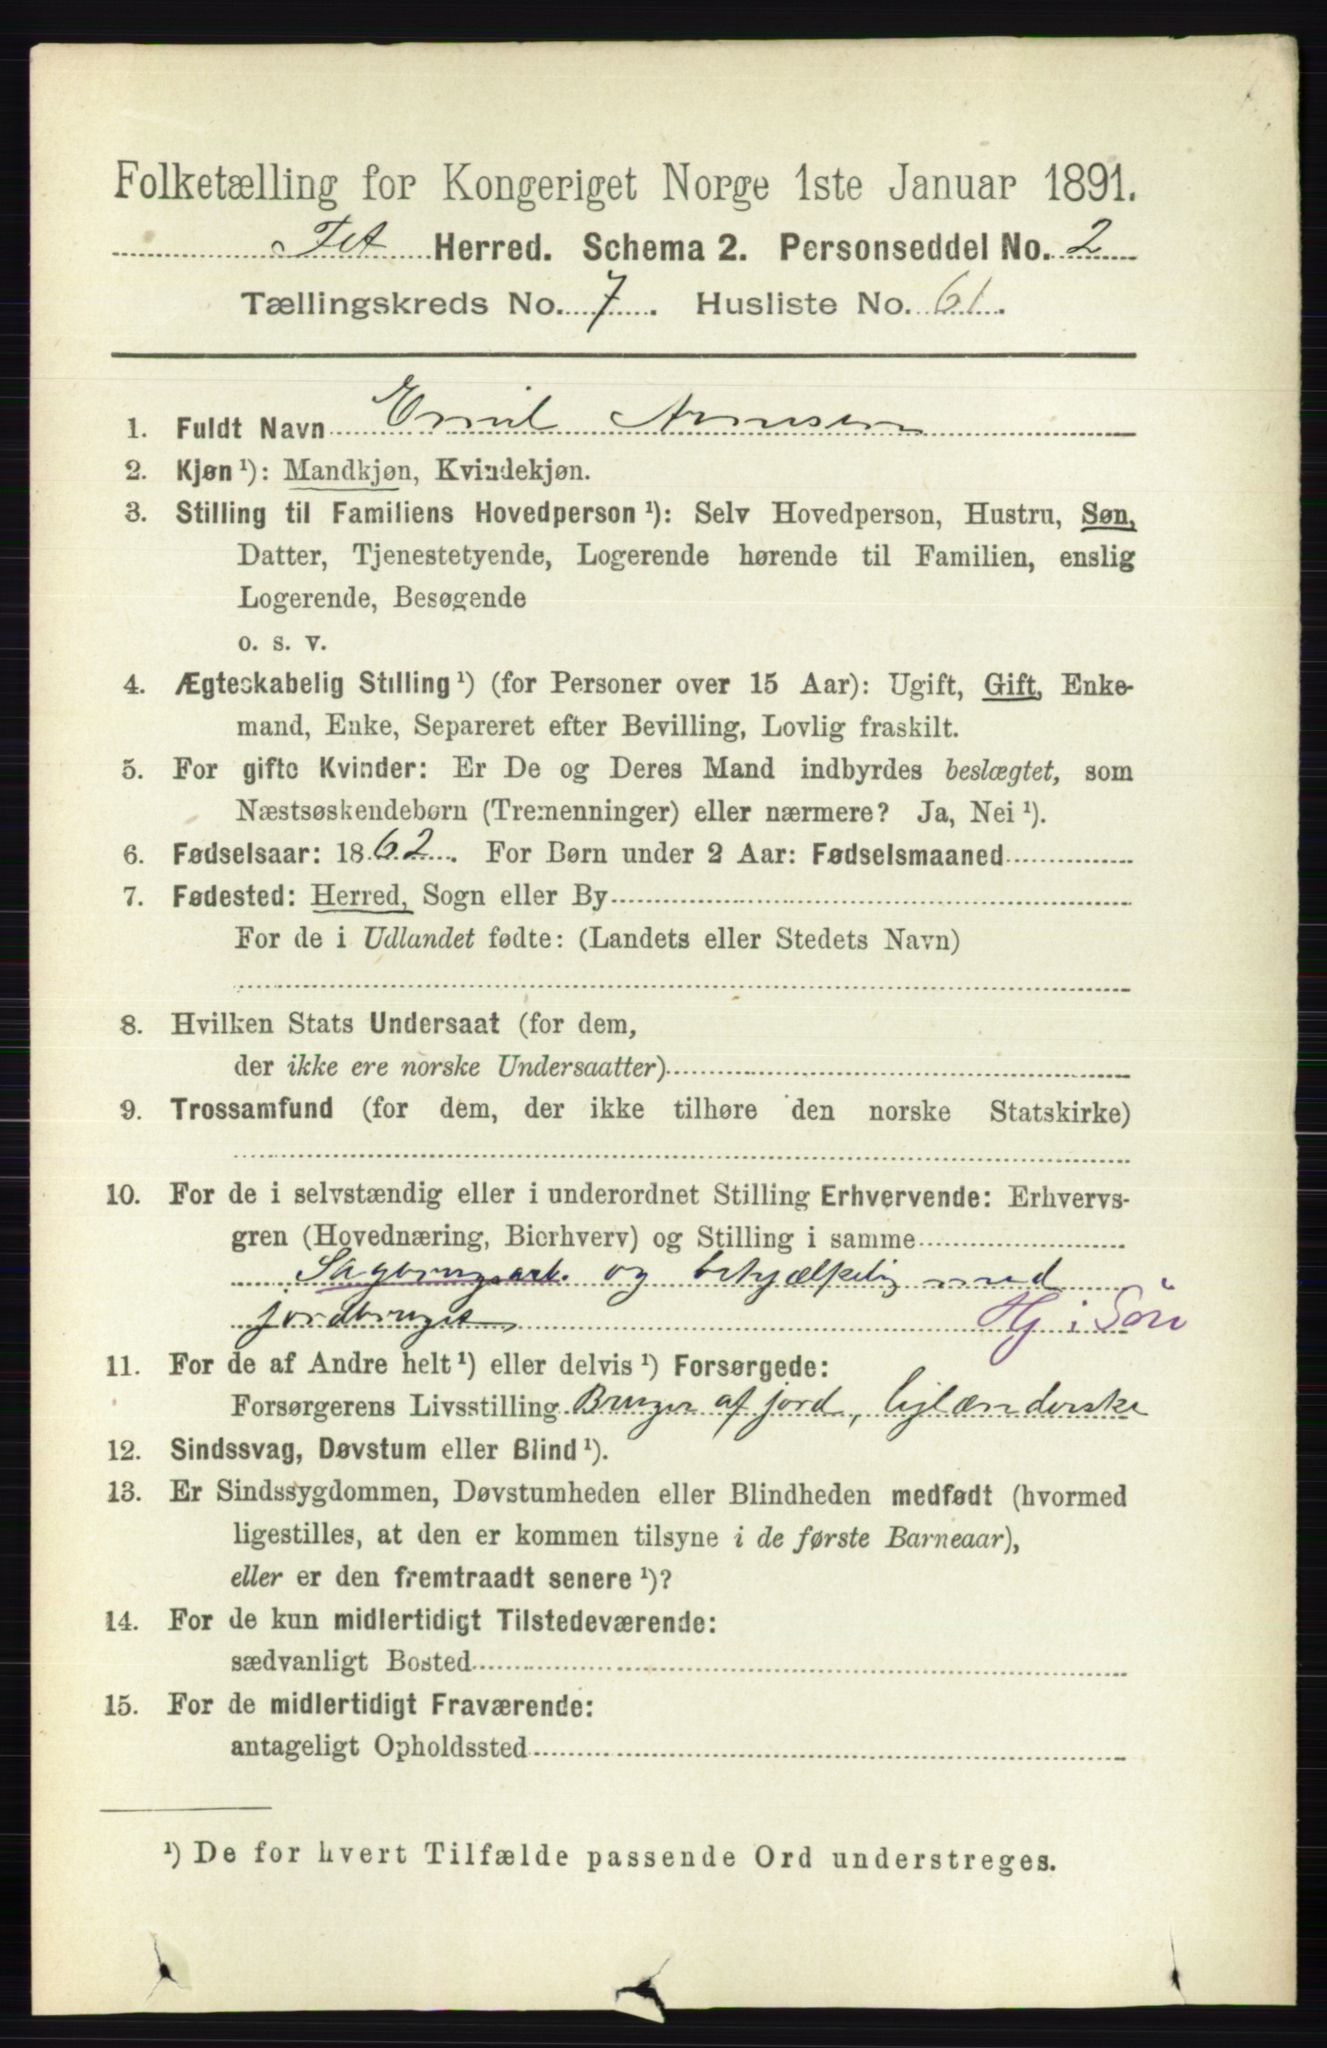 Folketælling for Kongeriget Norge 1ste Januar 1891.
Fet Herred. Schema 2. Personseddel No. 2
Tællingskreds No. 7. Husliste No. 61.
1. Fuldt Navn Emil Arnesen
2. Kjøn ¹): Mandkjøn, Kvindekjøn.
3. Stilling til Familiens Hovedperson ¹): Selv Hovedperson, Hustru, Søn,
Datter, Tjenestetyende, Logerende hørende til Familien, enslig
Logerende, Besøgende
o. s. v.
4. Ægteskabelig Stilling ¹) (for Personer over 15 Aar): Ugift, Gift, Enke-
mand, Enke, Separeret efter Bevilling, Lovlig fraskilt.
5. For gifte Kvinder: Er De og Deres Mand indbyrdes beslægtet, som
Næstsøskendebørn (Tremenninger) eller nærmere? Ja, Nei ¹).
6. Fødselsaar: 1862. For Børn under 2 Aar: Fødselsmaaned
7. Fødested: Herred, Sogn eller By
For de i Udlandet fødte: (Landets eller Stedets Navn)
8. Hvilken Stats Undersaat (for dem,
der ikke ere norske Undersaatter)
9. Trossamfund (for dem, der ikke tilhøre den norske Statskirke)
10. For de i selvstændig eller i underordnet Stilling Erhvervende: Erhvervs-
gren (Hovednæring, Bierhverv) og Stilling i samme
Sagbrugsarb. og behjælpelig med
jordbruget Hj i Søn
11. For de af Andre helt ¹) eller delvis ¹) Forsørgede:
Forsørgerens Livsstilling Bruger af jord,
12. Sindssvag, Døvstum eller Blind ¹).
13. Er Sindssygdommen, Døvstumheden eller Blindheden medfødt (hvormed
ligestilles, at den er kommen tilsyne i de første Barneaar),
eller er den fremtraadt senere ¹)?
14. For de kun midlertidigt Tilstedeværende:
sædvanligt Bosted
15. For de midlertidigt Fraværende:
antageligt Opholdssted
¹) De for hvert Tilfælde passende Ord understreges.